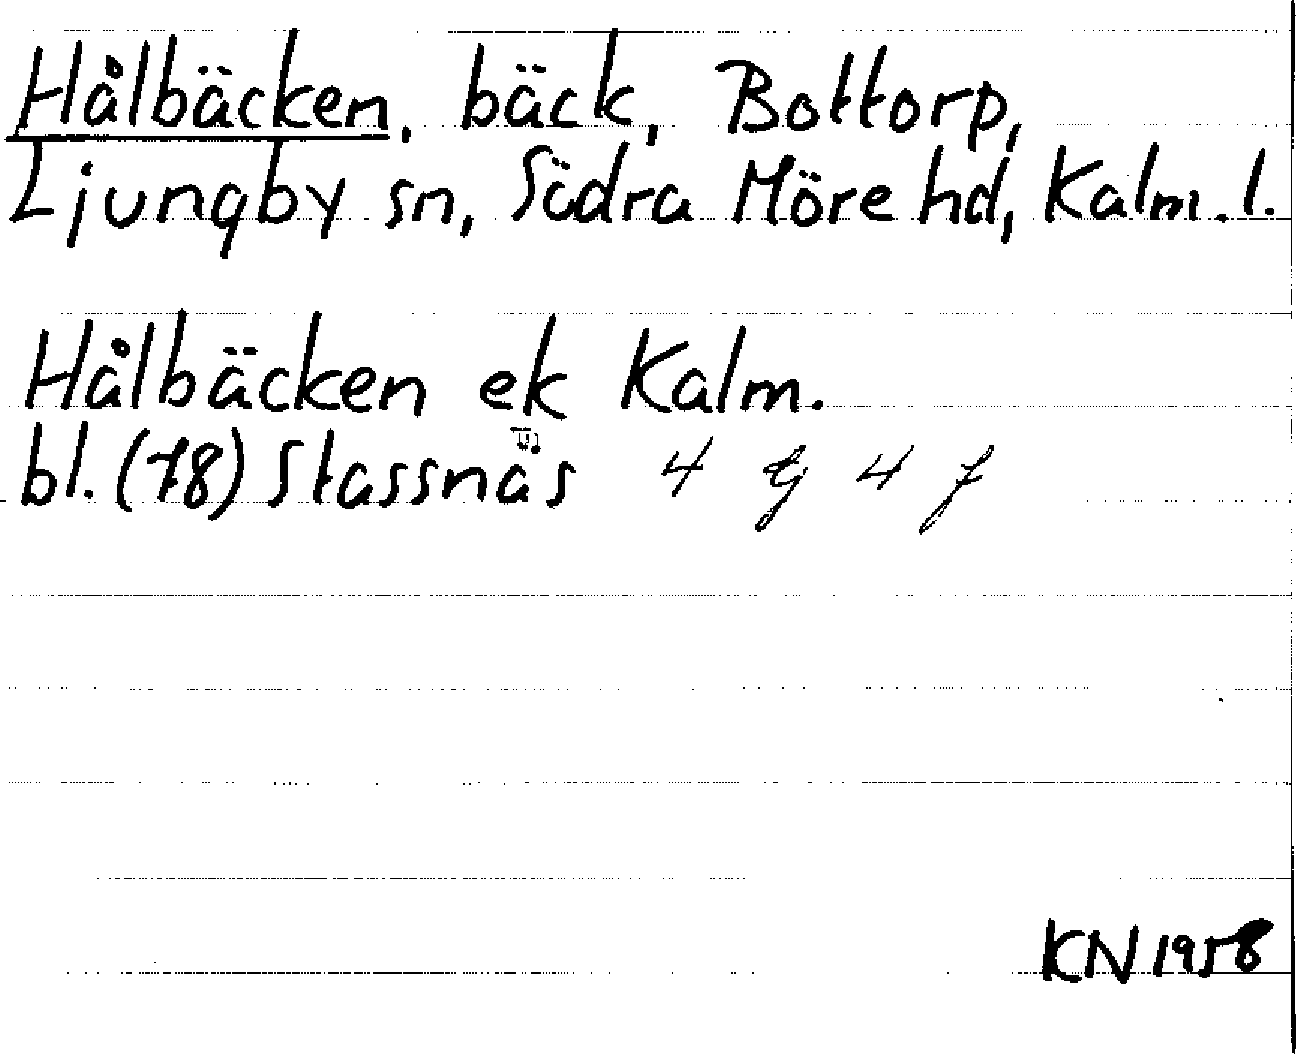 Hålbäcken, bäck, Bottorp,
Ljungby sn, Södra Möre hd, Kalm. l.
Hålbäcken ek Kalm.
bl. (78) Stassnäs 4 G 4 f
KN 1958